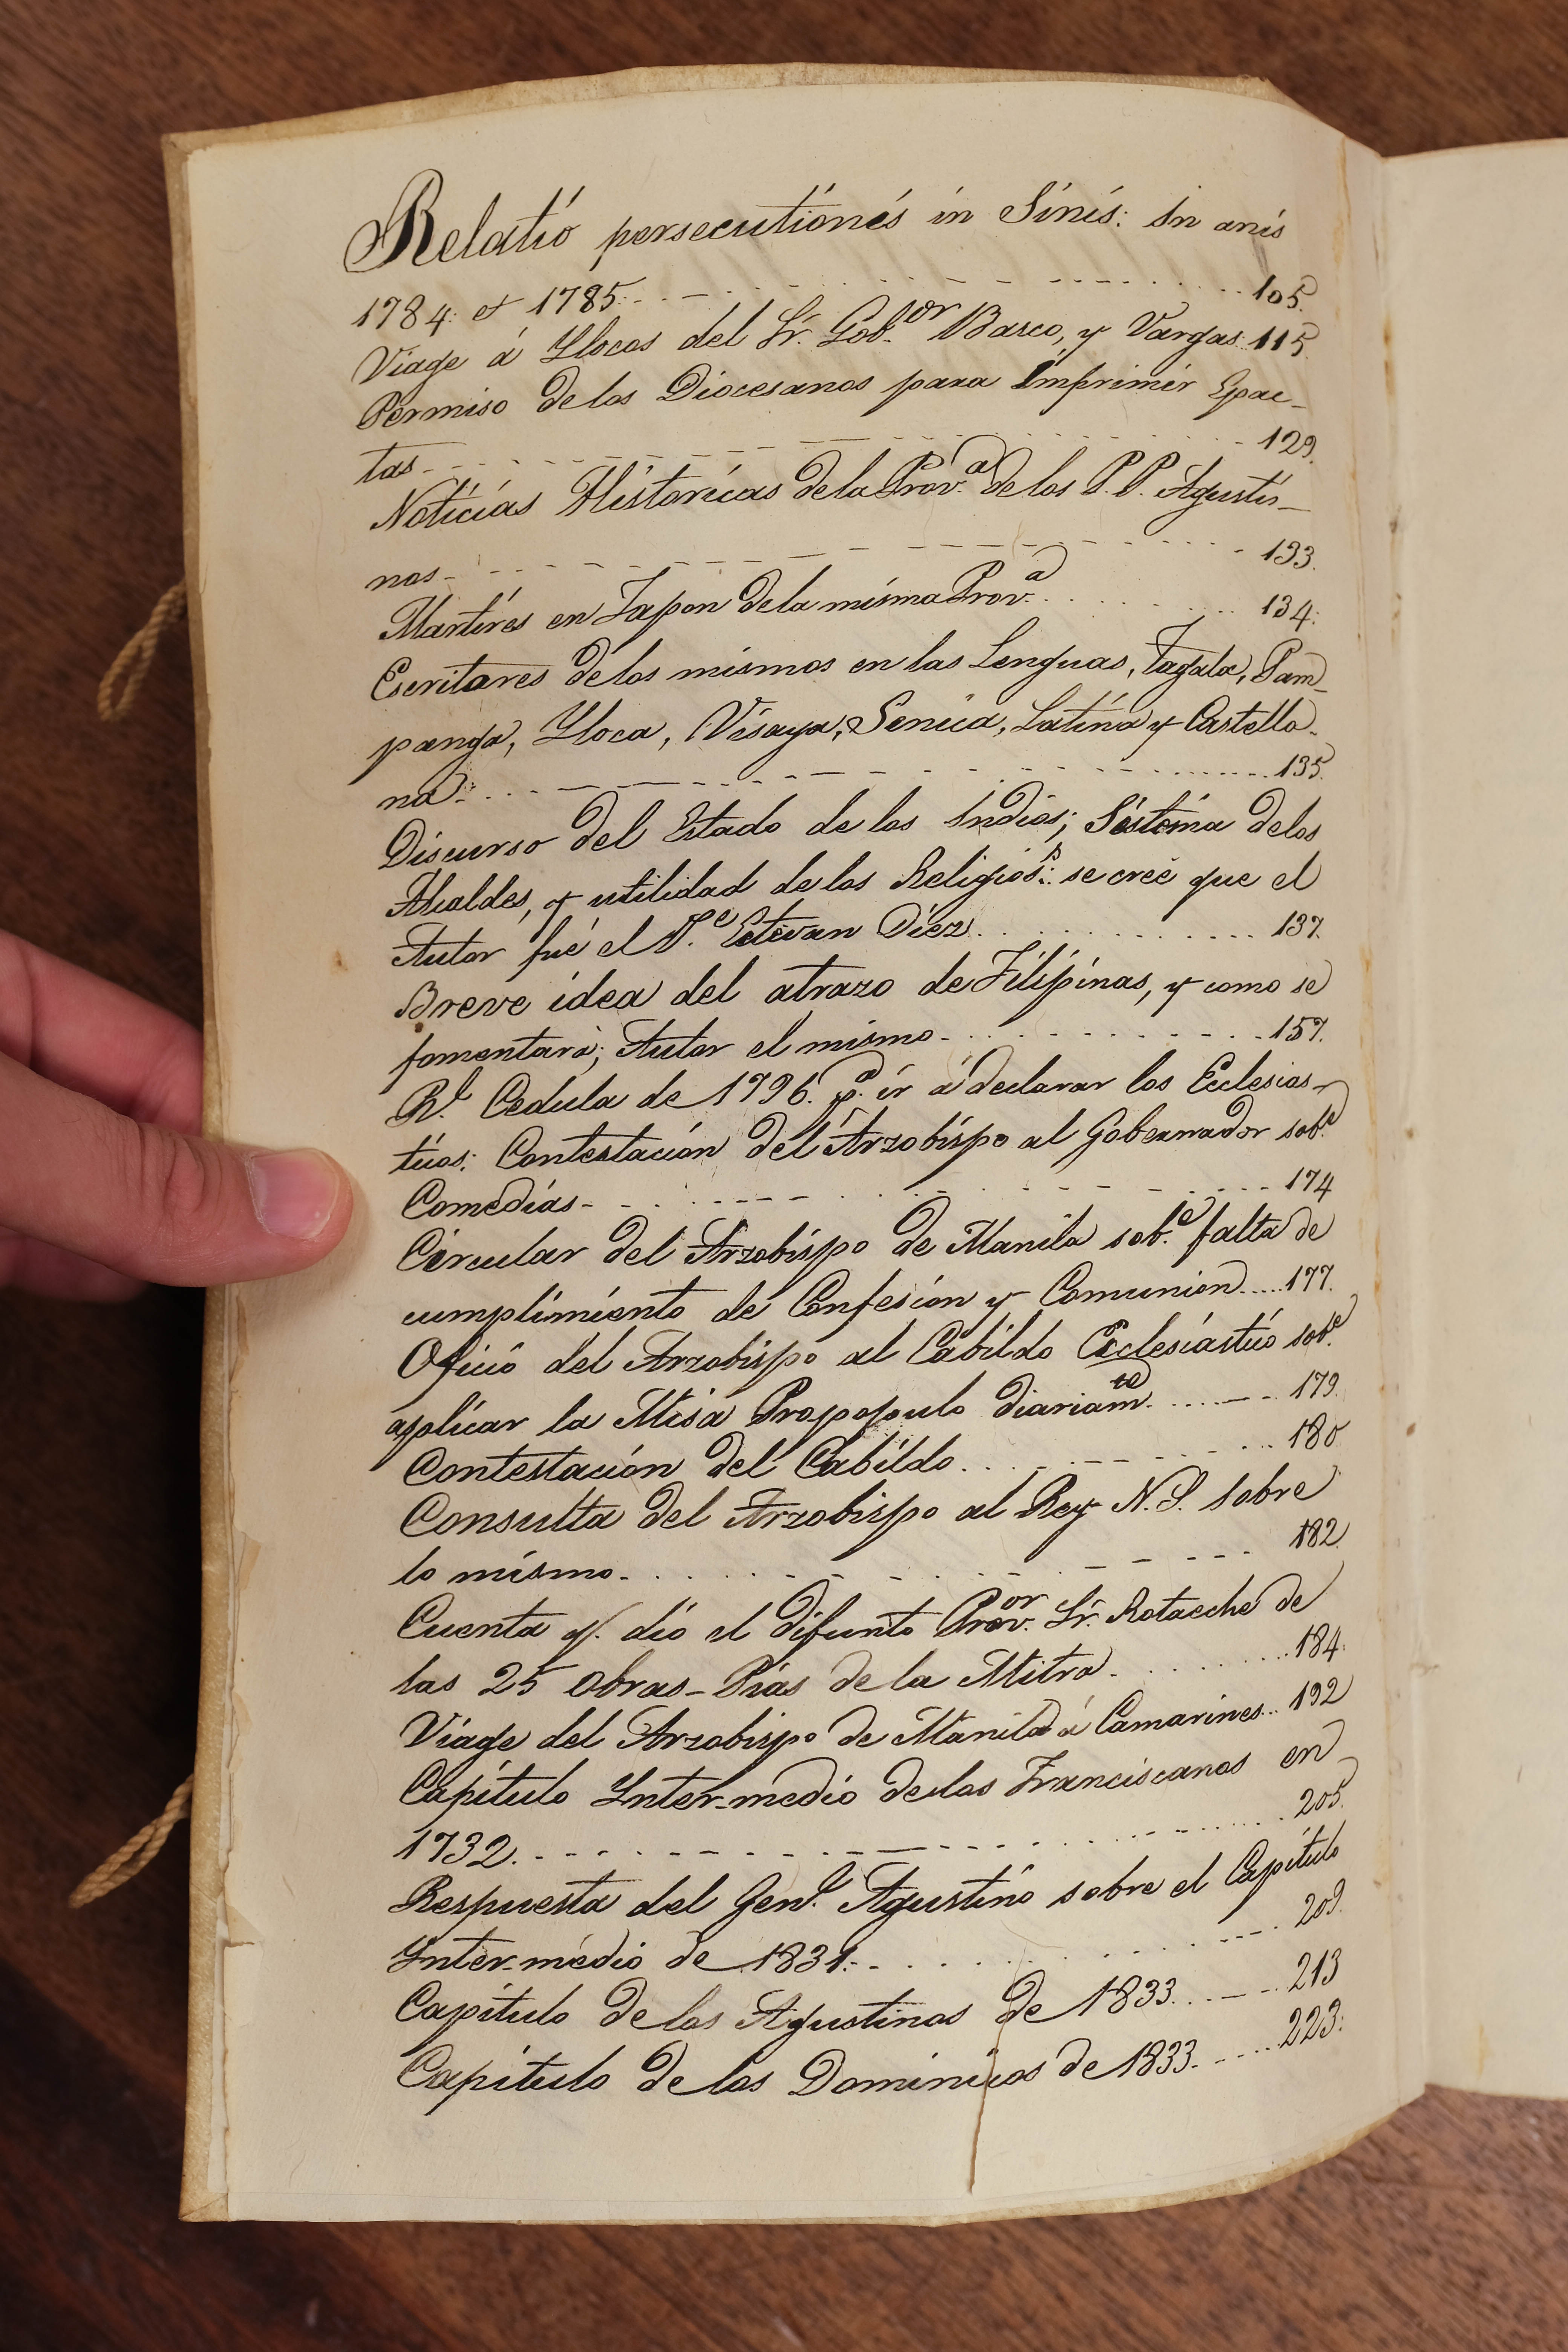 Relatió persecutiónés in Sínís: In anís
1784: et 1785: 105.
Viage á Ylocos del Sr. Gob.or Basco, y Vargas 115.
Permiso de los Diocesanos para Imprimir Epac-
tas 129.
Notícías Históricas de la Prov.a de los P.P. Agustí-
nos 133.
Martíres en Japon de la misma Prov.a 134:
Escritores de los mismos en las Lenguas, Tagala, Pam-
panga, Yloca, Visaya, Senica, Latína y Castella-
na: 135.
Discurso del Estado de las Indias; Sístéma de los
Alcaldes, y utilidad de los Religios.s: se creé que el
Autor fué el V.e Estevan Díez 137.
Breve ídea del atrazo de Filípínas, y como se
fomentará; Autor el mismo 157.
Rl. Cedula de 1796. p.a ír á declarar los Ecclesiás-
ticos: Contestación del Arzobíspo al Gobernador sob.e
Comedías 174
Círcular del Arzobíspo de Manila sob.e falta de
cumplímíento de Confesíon y Comunion 177.
Ofició del Arzobispo al Cabíldo Ecclesíástico sob.e
aplicar la Misa Propopulo diariam.te 179.
Contestación del Cabíldo 180
Consulta del Arzobispo al Rey N.S. sobre
lo mísmo 182.
Cuenta q. dió el difunto Prov.or Sr. Rotaeche de
las 25 obras-Pías de la Mitra 184.
Viage del Arzobispo de Manila á Camarines 192
Capítulo Inter-medio de los Franciscanos en
1732. 205.
Respuesta del Gen.l Agustíno sobre el Capítulo
Inter-médio de 1831. 209.
Capítulo de los Agustinos de 1833. 213
Capítulo de los Dominicos de 1833. 223.